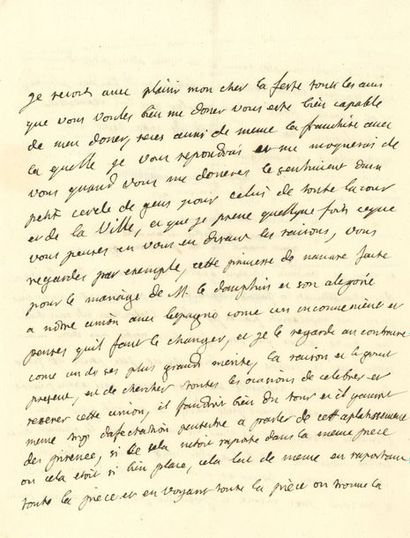 je recois avec plaisir mon cher la ferte tous les avis
que vous voules bien me doner vous este bien capable
de men doner, reces aussi de meme la franchise avec
la quelle je vous repondrai et me moquerai de
vous quand vous me doneres le sentiment dun
petit cercle de gens pour celui de toute la cour
et de la ville, et que je prene quelque fois ce que
vous penses en vous en disant les raisons, vous
regardes par exemple, cette princesse de navare faite
pour le mariage de M. le dauphin et son alegorie
a notre union avec lespagne come un inconvenient et
penses quil faut le changer, et je le regarde au contraire
come un de ses plus grand merite, la raison et le gout
present, est de chercher toutes les ocasions de celebrer et
reserer cette union, il faudroit bien du tour et il y auroit
meme trop dafectation peutetre a parler de cet aplanissement
des pirenées, si cela netoit raporté dans la meme piece
ou cela etoit si bien placé, cela lui de meme en raportant
toute la piece et en voyant toute la piece on trouve la